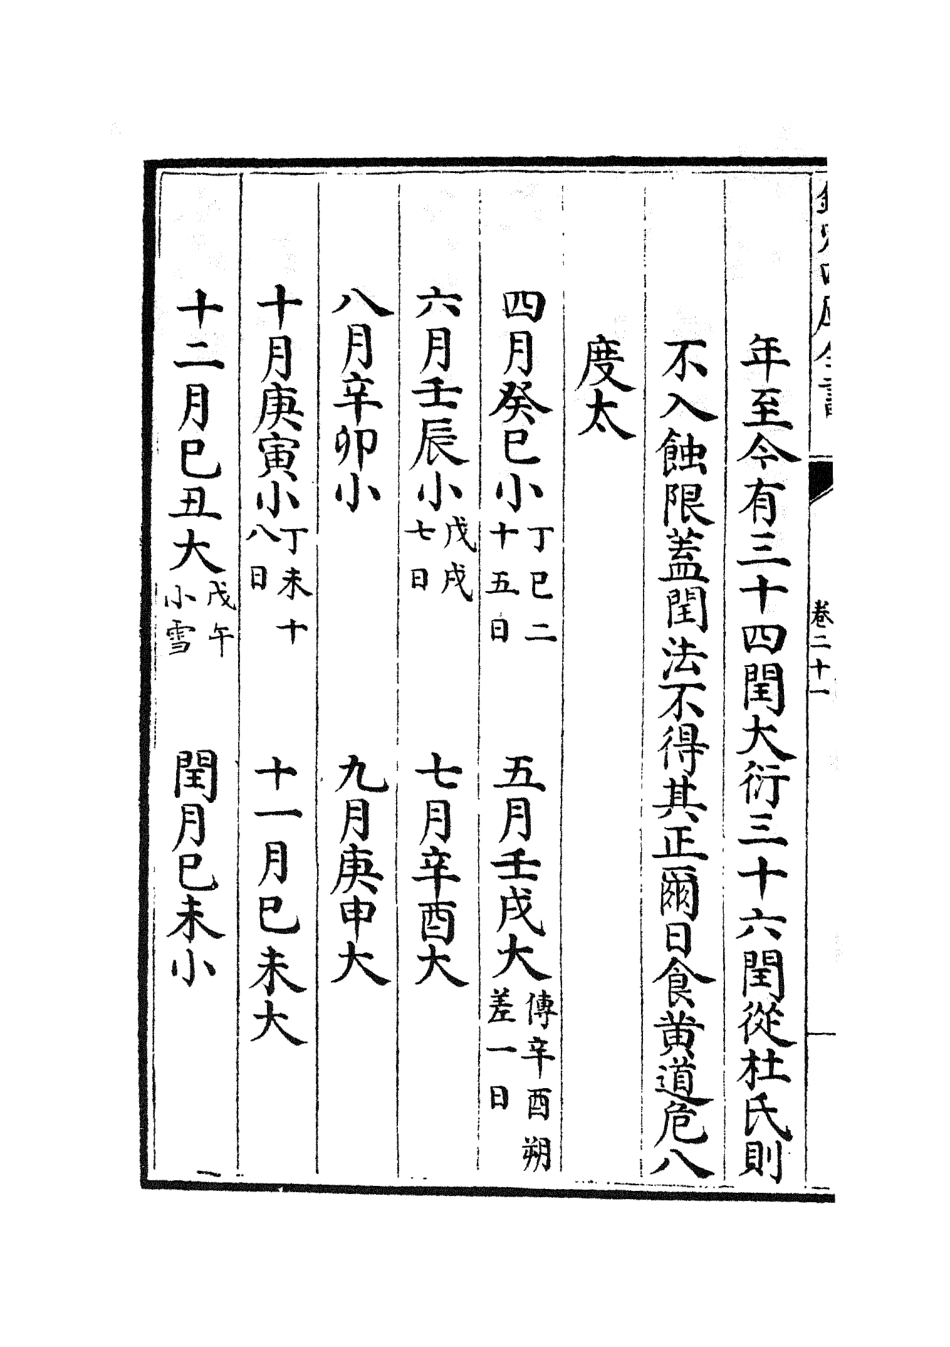 欽定四庫全書
卷二十一
年至今有三十四閏大衍三十六閏從杜氏則
不入蝕限蓋閏法不得其正爾日食黄道危八
度太
四月癸巳小丁巳二十五日 五月壬戌大傳辛酉朔差一日
六月壬辰小戊戌七日 七月辛酉大
八月辛卯小 九月庚申大
十月庚寅小丁未十八日 十一月巳未大
十二月巳丑大戊午小雪 閏月巳未小